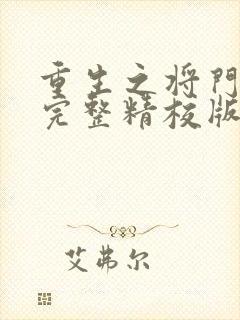 重生之将门
完整精校版
艾弗尔